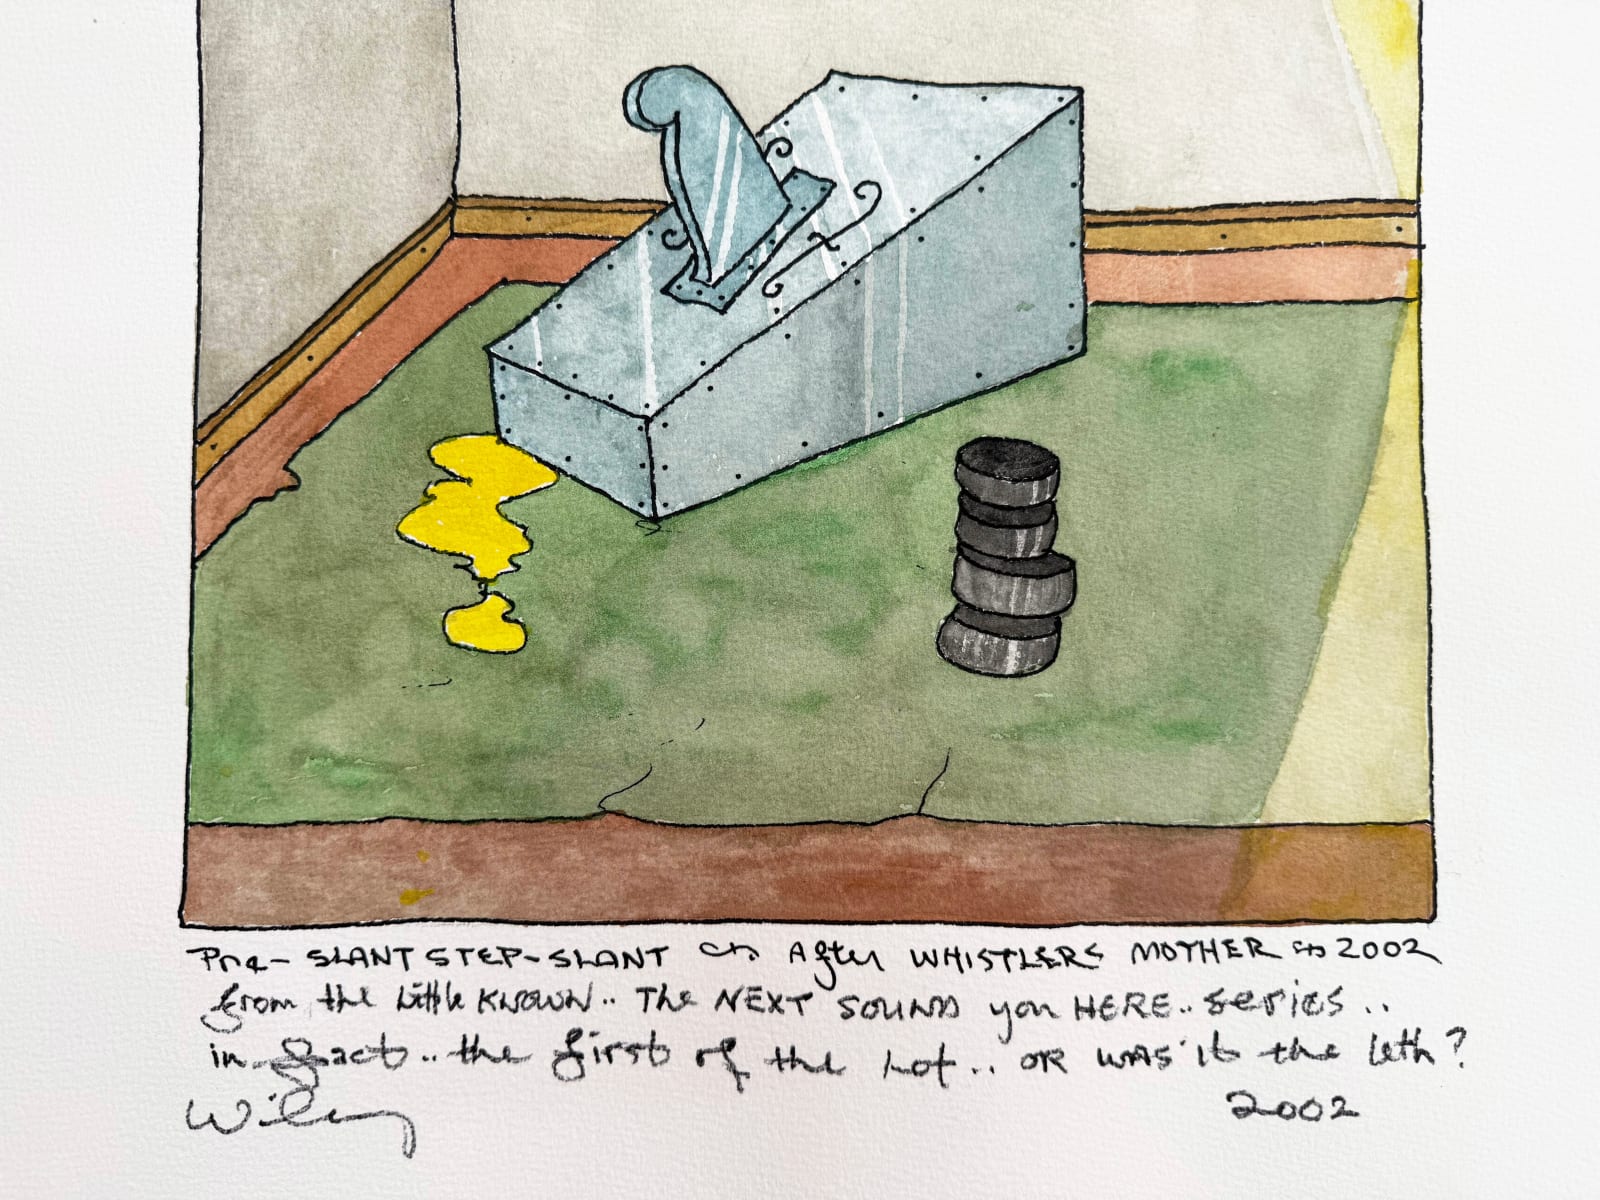 Pre-SLANT STEP-SLANT After WHISTLERS MOTHER 2002
from the little KNOWN.. The NEXT SOUND you HERE.. series..
in fact.. the first of the Lot.. OR WAS it the
Wiley 2002